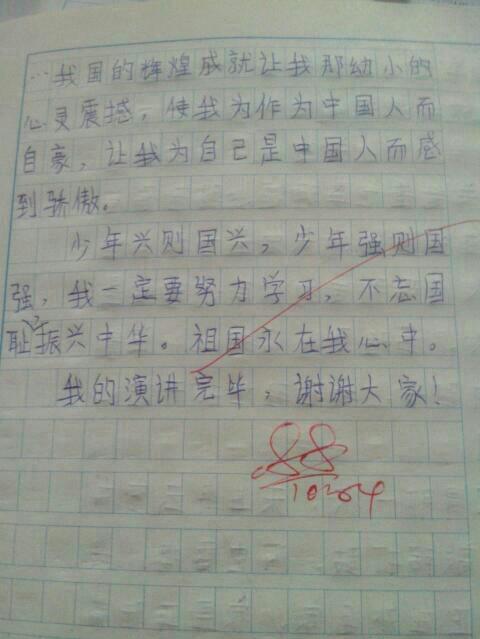 …我国的辉煌成就让我那幼小的
心灵震撼，使我为作为中国人而
自豪，让我为自己是中国人而感
到骄傲。
少年兴则国兴，少年强则国
强，我一定要努力学习，不忘国
耻，振兴中华。祖国永在我心中。
我的演讲完毕，谢谢大家！
88
10.04